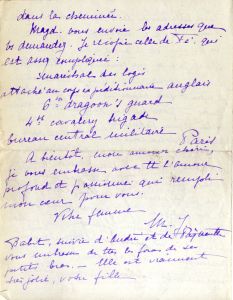 dans la cheminée.
Magd. vous envoie les adresses que
vous demandez. Je recopie celle de X. qui
est assez compliquée :
maréchal des logis
attaché au corps expéditionnaire anglais
6th dragoon's guard
4th cavalery brigade
bureau central militaire
Paris
A bientôt, mon amour chéri,
je vous embrasse avec tt l'amour
profond et passionné qui remplit
mon cœur pour vous.
Votre femme
Babet, suivie d'André et de Paquette
vous embrasse de ttes les forces de ses
petits bras. Elle est vraiment
très jolie, votre fille